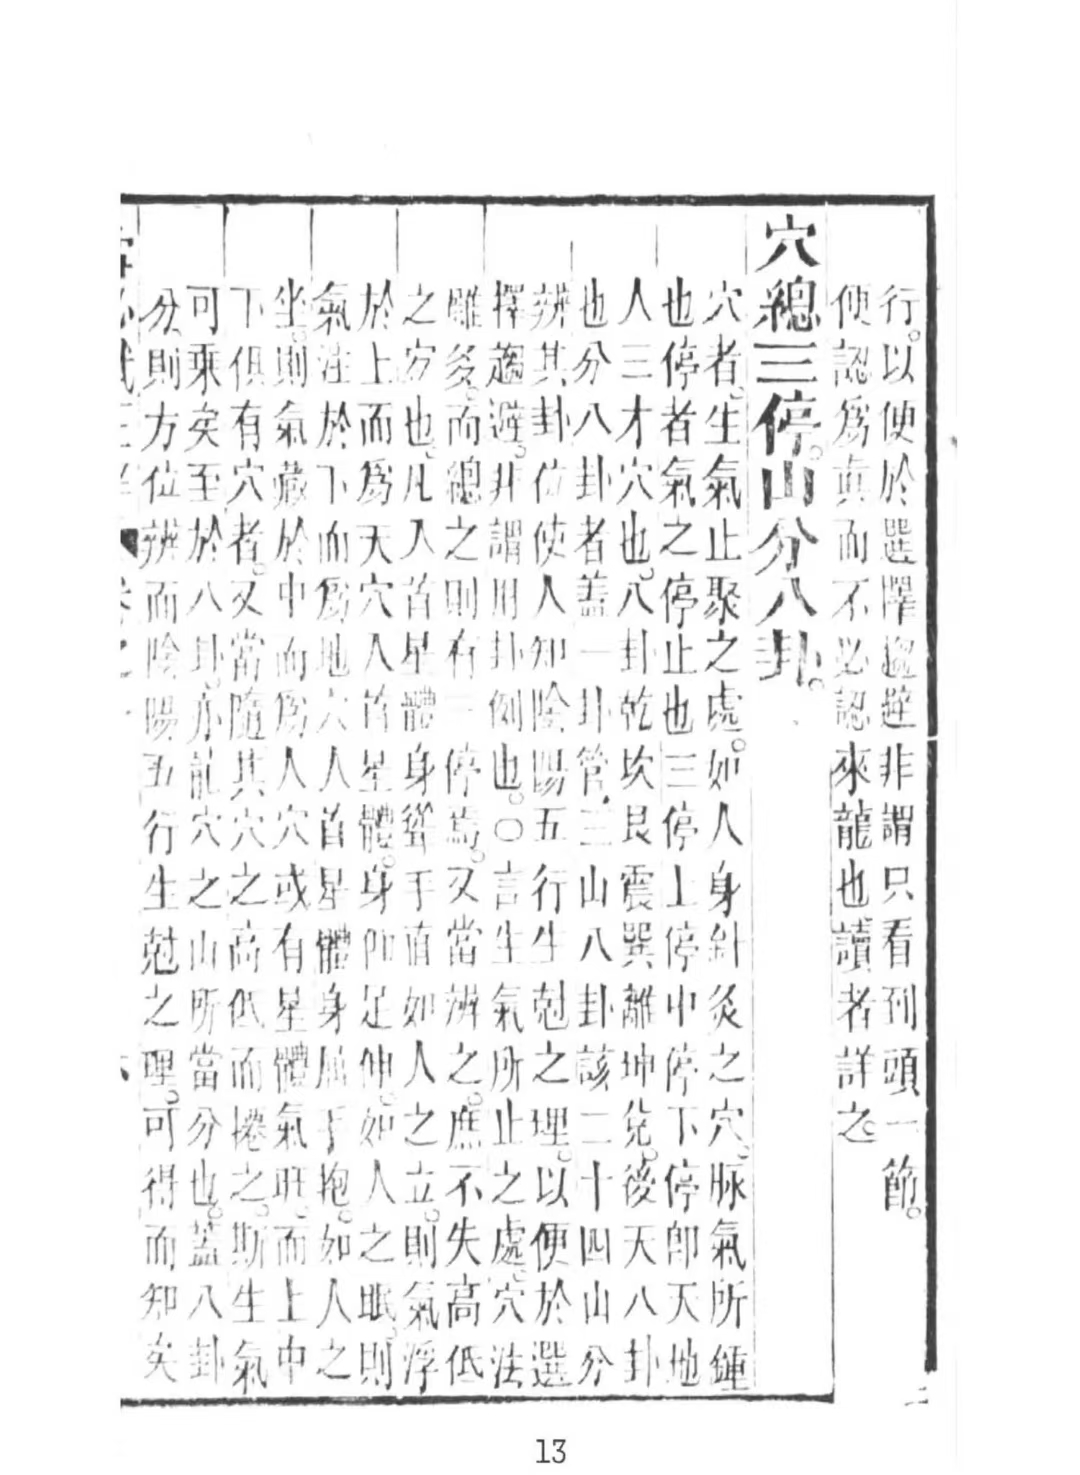 行。以便於選擇趨避非謂只看到頭一節。
便認爲真而不必認來龍也讀者詳之。
穴總三停。山分八卦。
穴者。生氣止聚之處。如人身針灸之穴。脉氣所鍾
也停者氣之停止也三停上停中停下停卽天地
人三才穴也。八卦乾坎艮震巽離坤兌。後天八卦
也分八卦者蓋一卦管三山八卦該二十四山分
辨其卦位使人知陰陽五行生尅之理。以便於選
擇趨避。非謂用卦例也。○言生氣所止之處。穴法
雖多。而總之則有三停焉。又當辨之。庶不失高低
之穷也。凡入首星體身聳手直如人之立。則氣浮
於上而爲天穴入首星體。身仰足伸。如人之眠。則
氣注於下而爲地穴入首星體身屈手抱。如人之
坐。則氣藏於中而爲人穴或有星體氣旺。而上中
下俱有穴者。又當隨其穴之高低而捲之。斯生氣
可乘矣至於八卦。亦龍穴之山所當分也。蓋八卦
分則方位辨而陰陽五行生尅之理。可得而知矣
卷之一
二
13